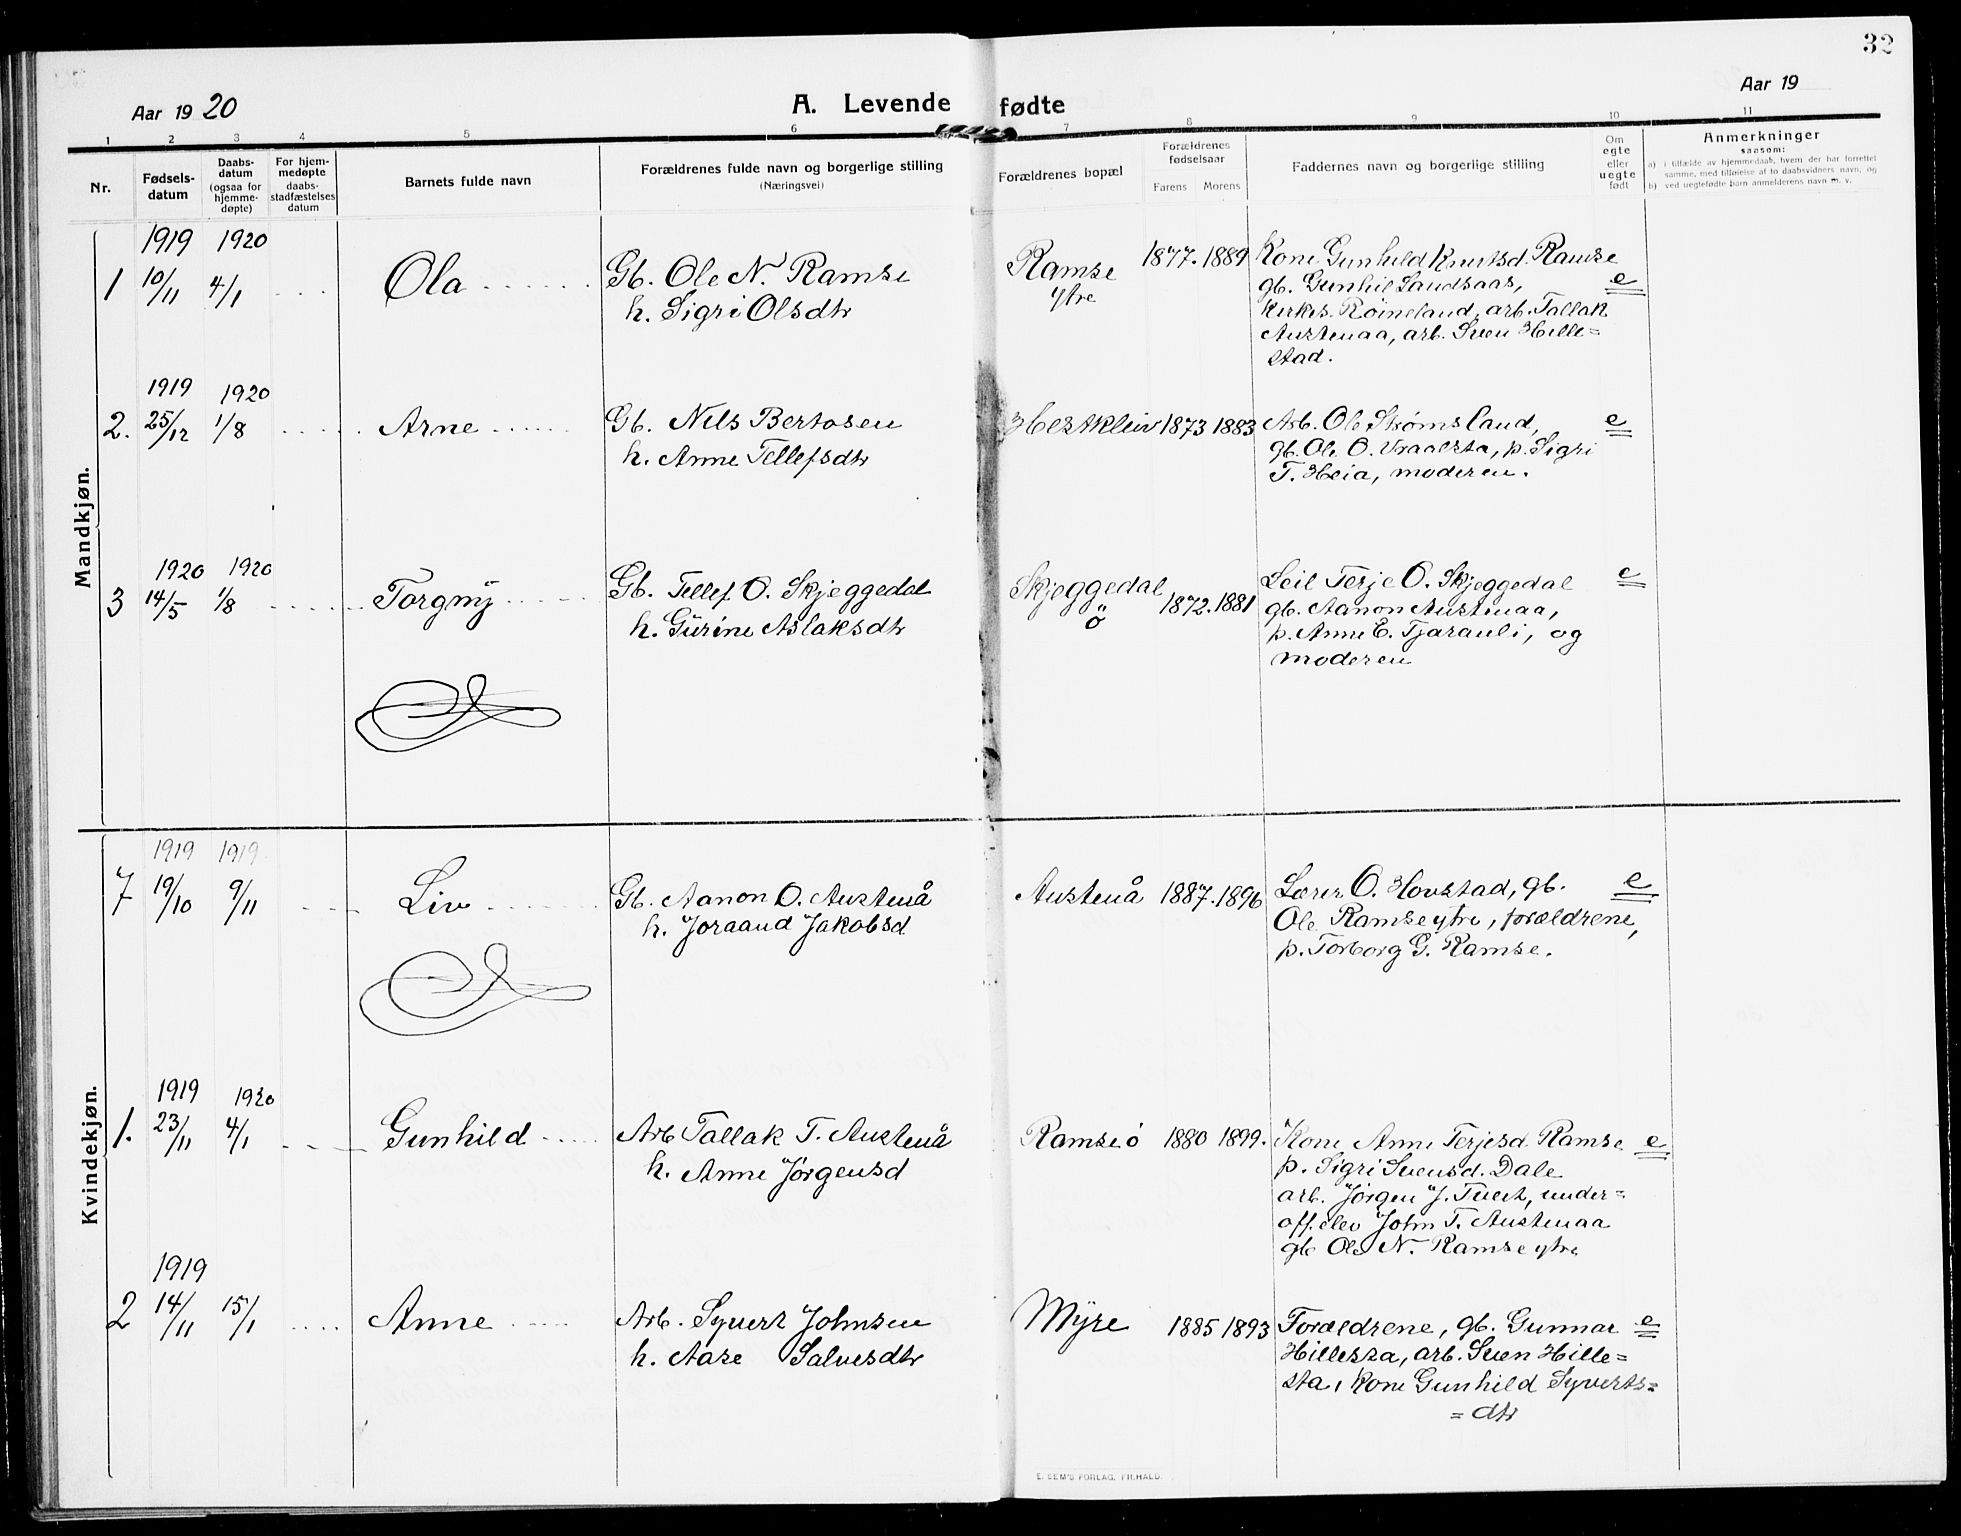 32
Aar 1920
A. Levende fødte
Aar 19
1 2 3 4 5 6 7 8 9 10 11
Nr.
Fødsels-
datum
Daabs-
datum
(ogsaa for
hjemme-
døpte)
For hjem-
medøpte
daabs-
stadfæstelses
datum
Barnets fulde navn
Forældrenes fulde navn og borgerlige stilling
(Næringsvei)
Forældrenes bopæl
Forældrenes
fødselsaar
Farens Morens
Faddernes navn og borgerlige stilling
Om
egte
eller
uegte
født
Anmerkninger
saasom:
a) i tilfælde av hjemmedaab, hvem der har forrettet
samme, med tilføielse af to daabsvidners navn, og
b) ved uegtefødte barn anmelderens navn m. v.
Mandkjøn.
1919 1920
1 10/11 4/1 Ola
Gb. Ole N. Ramse
h. Sigri Olsdtr
Ramse
ytre
1877. 1889
Kone Gunhild Knutsd. Ramse
gb. Gunhil Landsaas,
kirkes. Røineland, arb. Tallak
Austenaa, arb. Sven Hille=
stad.
e
1919 1920
2. 25/12 1/8 Arne
Gb. Nils Bertosen
h. Anne Tellefsdtr
Hestkleiv 1873 1883
Arb. Ole Strømsland,
gb. Ole O. Vraalsta, p. Sigri
T. Heia, moderen.
e
1920 1920
3 14/5 1/8 Torgny
Gb. Tellef O. Skjeggedal
h. Gurine Aslaksdtr
Skjeggedal
ö
1872. 1881
Leil Terje O. Skjeggedal
gb. Aanon Austenaa,
p. Anne E. Tjarauli, og
moderen
e
Kvindekjøn.
1919 1919
7 19/10 9/11 Liv
Gb. Aanon O. Austenå
h. Joraand Jakobsd
Austenå 1887. 1896
Lærer O. Hovstad, gb.
Ole Ramse ytre, forældrene,
p. Torborg G. Ramse.
e
1919 1920
1. 23/11 4/1 Gunhild
Arb Tallak T. Austenå
h. Anne Jørgensd
Ramse ö 1880 1899.
Kone Anne Terjesd. Ramse
p. Sigri Svensd. Dale
arb. Jørgen J. Tveit, under=
off. elev John T. Austenaa
gb Ole N. Ramse ytre
e
1919
2 14/11 15/1 Anne
Arb. Syvert Johnsen
h. Aase Salvesdtr
Myre 1885 1893
Forældrene, gb. Gunnar
Hillesta, arb. Sven Hille=
sta, Kone Gunhild Syverts=
= dtr
e
E. SEM'S FORLAG, FR.HALD.